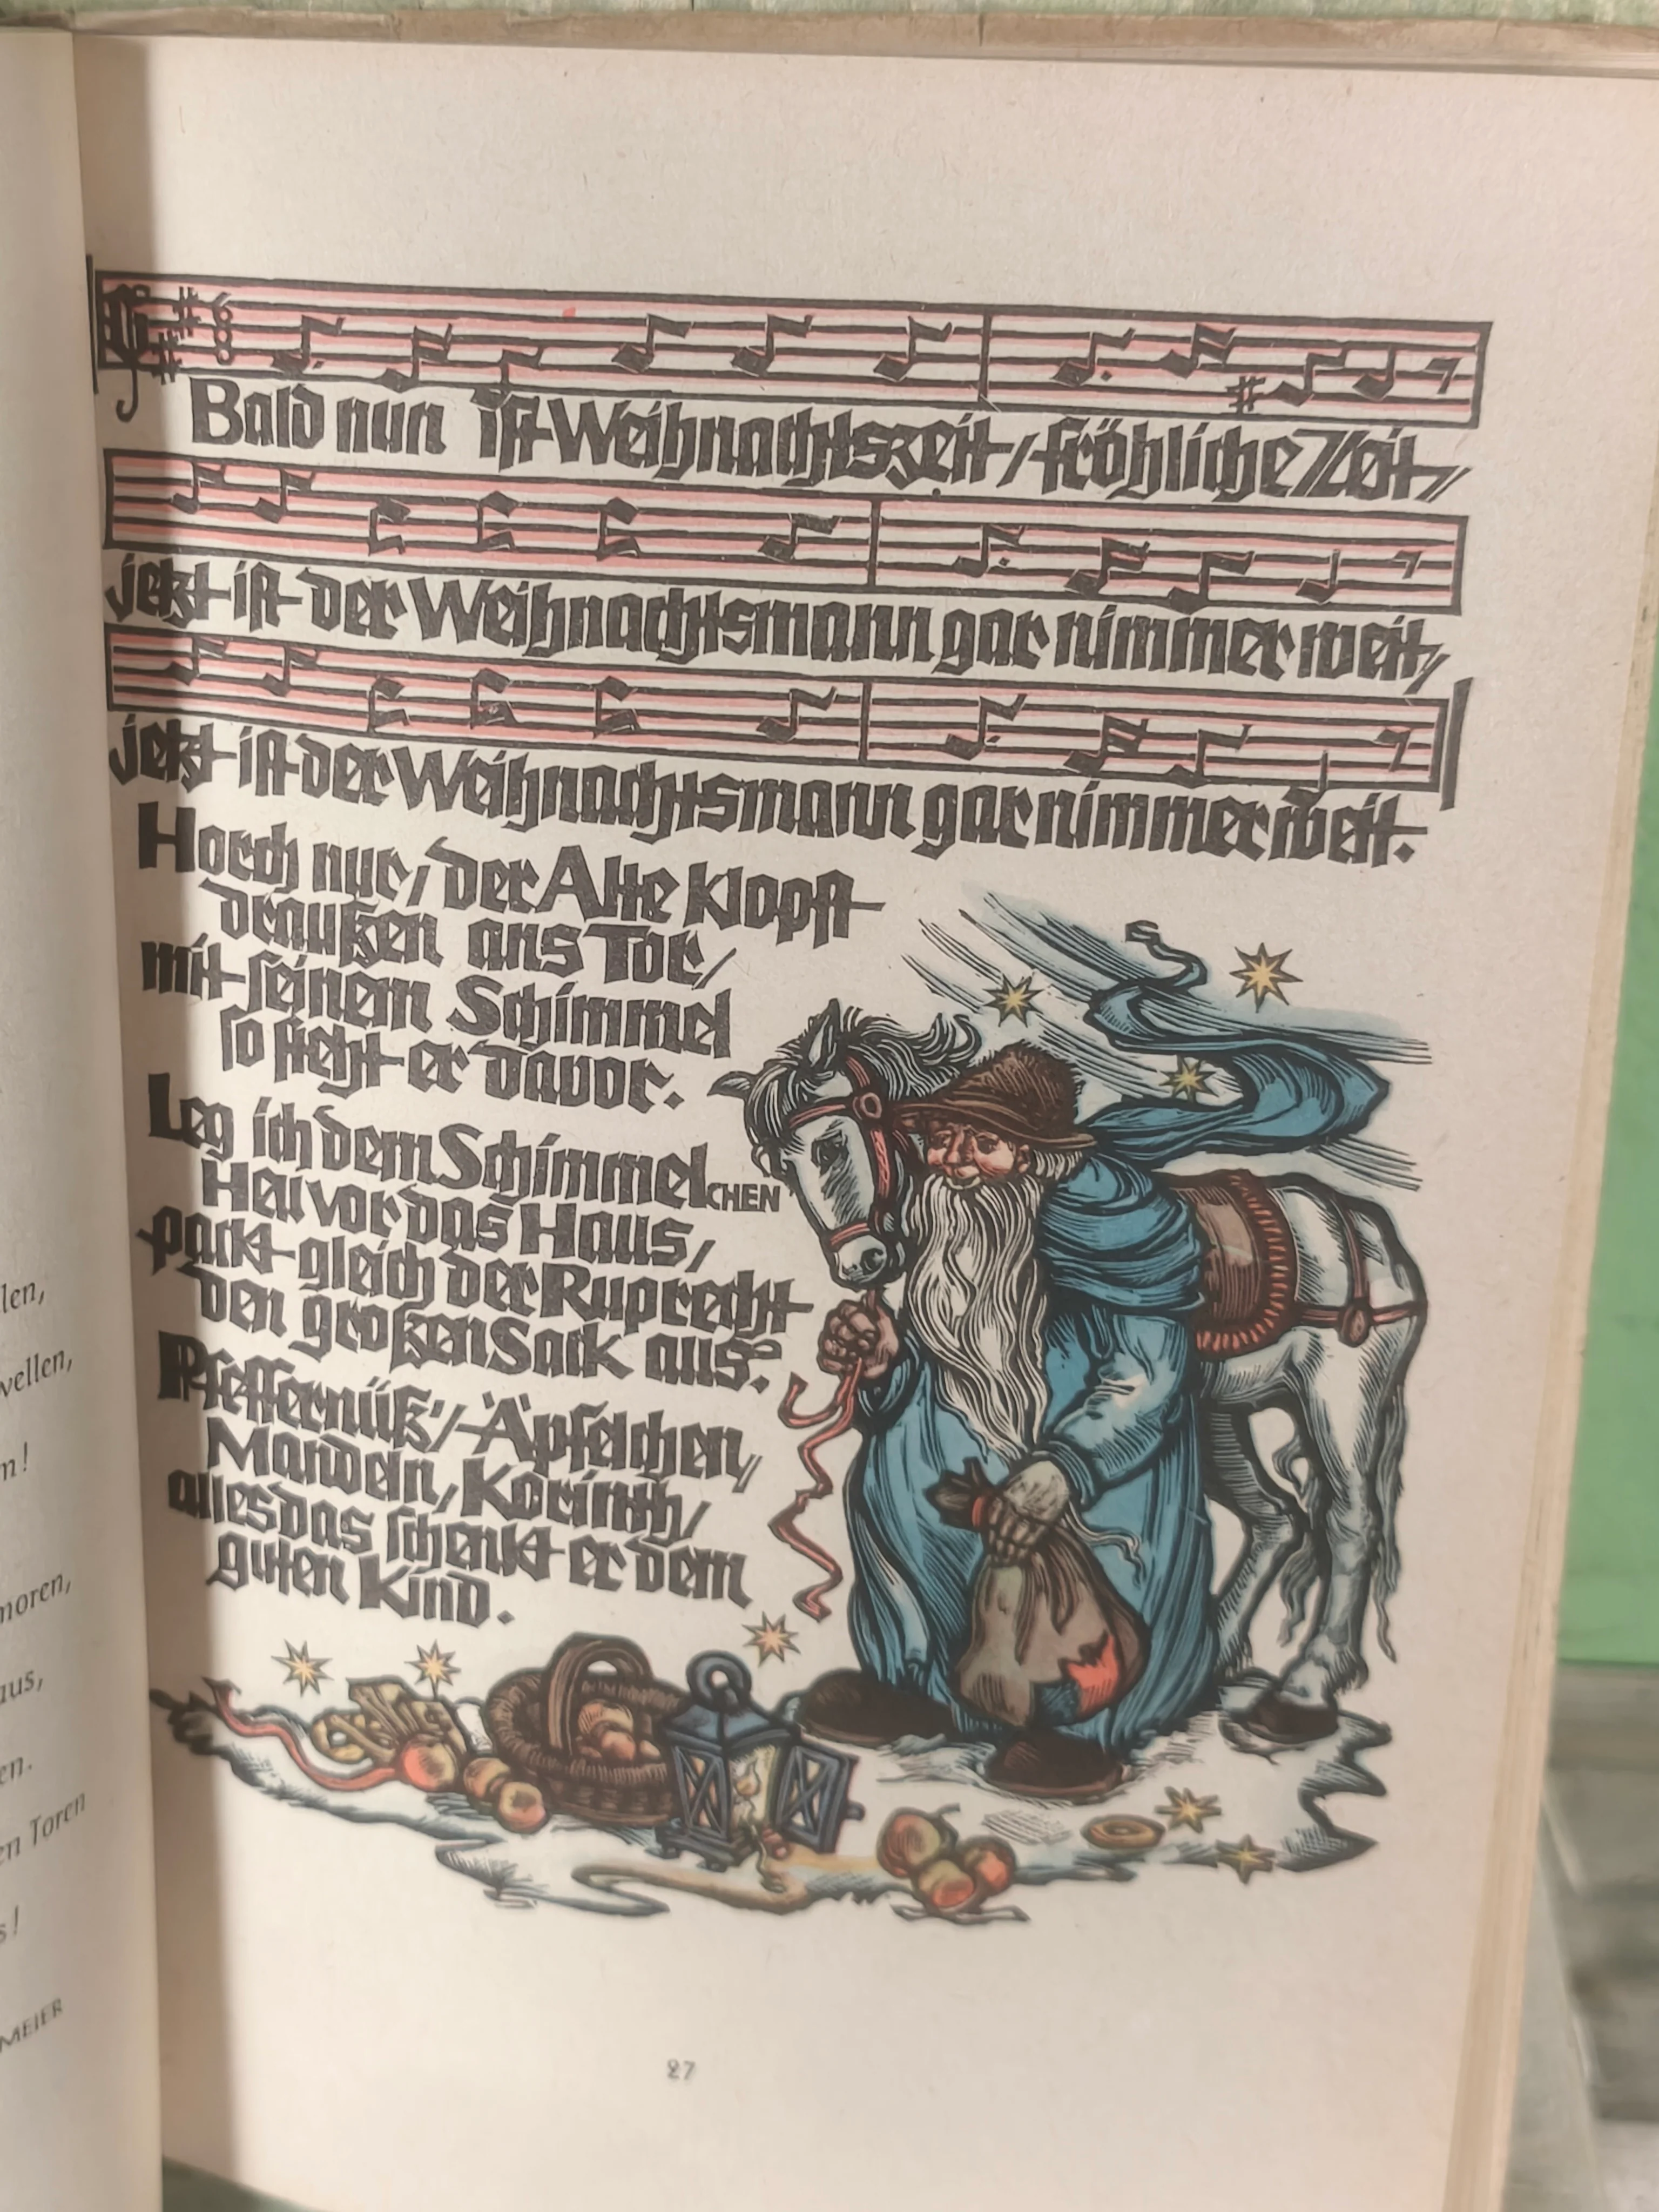 Bald nun ist Weihnachtszeit, fröhliche Zeit,
jetzt ist der Weihnachtsmann gar nimmer weit,
jetzt ist der Weihnachtsmann gar nimmer weit.
Horch nur, der Alte klopft
draußen ans Tor,
mit seinem Schimmel
so steht er davor.
Leg ich dem SchimmelCHEN
Heu vor das Haus,
packt gleich der Ruprecht
den großen Sack aus.
Pfeffernüß', Äpfelchen,
Mandeln, Korinth,
alles das schenkt er dem
guten Kind.
27
len,
wellen,
m!
moren,
aus,
en.
en Toren
s!
MEIER